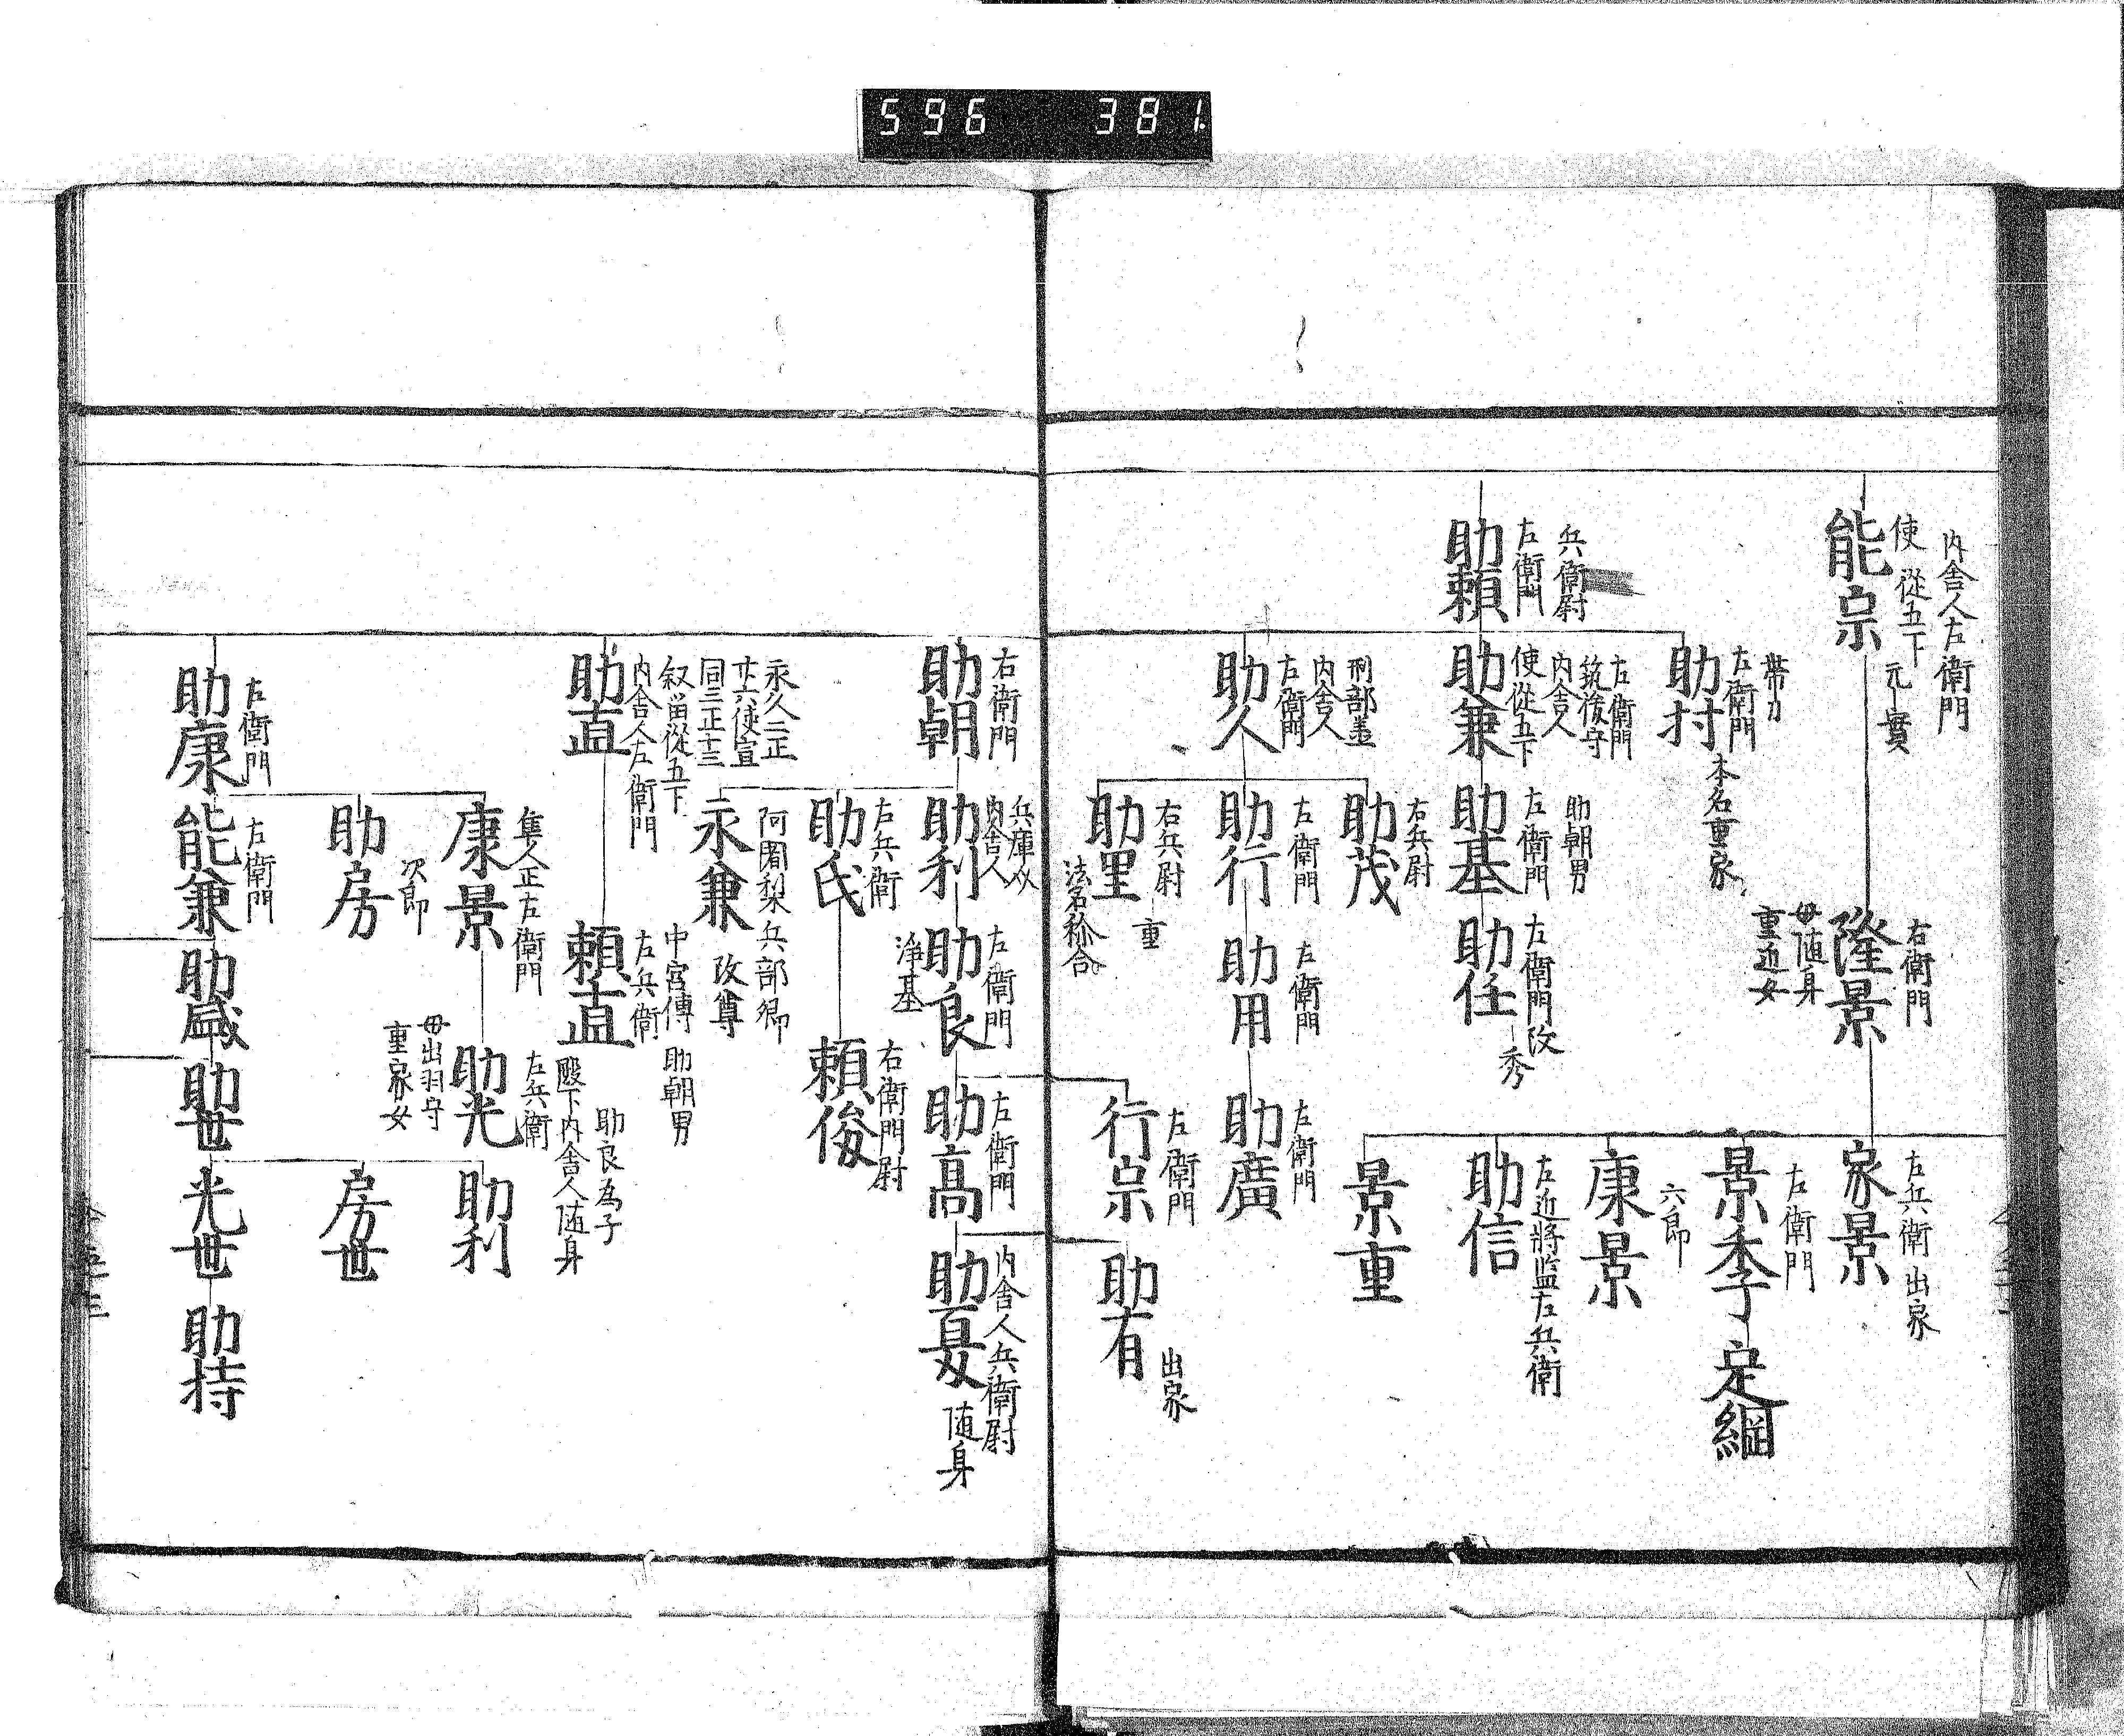 596 381
内舎人左衛門
使 從五下 元實
能宗
右衛門
隆景
母随身
重近女
左兵衛 出家
家景
左衛門
景季
定綱
六郎
康景
左近將監左兵衛
助信
景重
兵衛尉
左衛門
助頼
帯刀
左衛門 本名重家
助村
左衛門
筑後守
内舎人
使從五下
助兼
助朝男
左衛門
助基
左衛門改秀
助任
刑部丞
内舎人
左衛門
助久
右兵尉
助茂
左衛門
助行
左衛門
助用
左衛門
助廣
右兵尉 重
助里
法名称合
左衛門
行宗
助有
出家
右衛門
助朝
兵庫允
内舎人
助利
左衛門
助良
淨基
左衛門
助高
内舎人兵衛尉
助夏
随身
左兵衛
助氏
右衛門尉
頼俊
阿闍梨兵部卿
永兼 改尊
永久二正
廿六使宣
同三正十三
叙留從五下
内舎人左衛門
助直
中宮傳 助朝男
左兵衛
頼直
助良為子
殿下内舎人随身
左衛門
助康
隼人正左衛門
康景
左兵衛
助光
母出羽守
重家女
助利
房世
助房
次郎
左衛門
能兼
助盛
助世
光世
助持